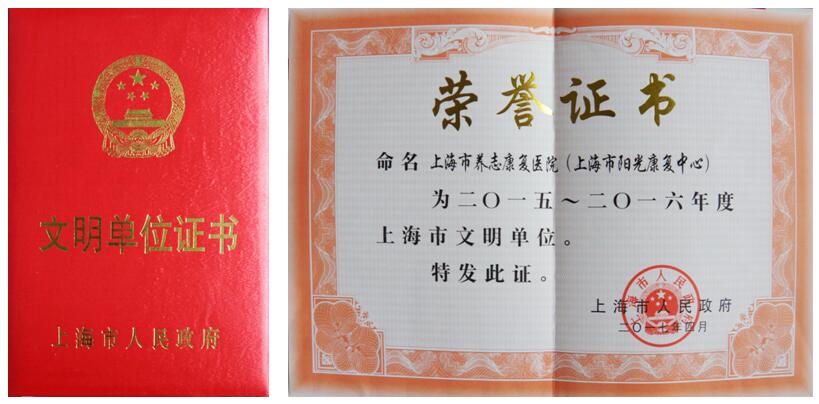 文明单位证书
上海市人民政府
荣誉证书
命名 上海市养志康复医院（上海市阳光康复中心）
为二〇一五～二〇一六年度
上海市文明单位。
特发此证。
上海市人民政府
二〇一七年四月
上海市人民政府